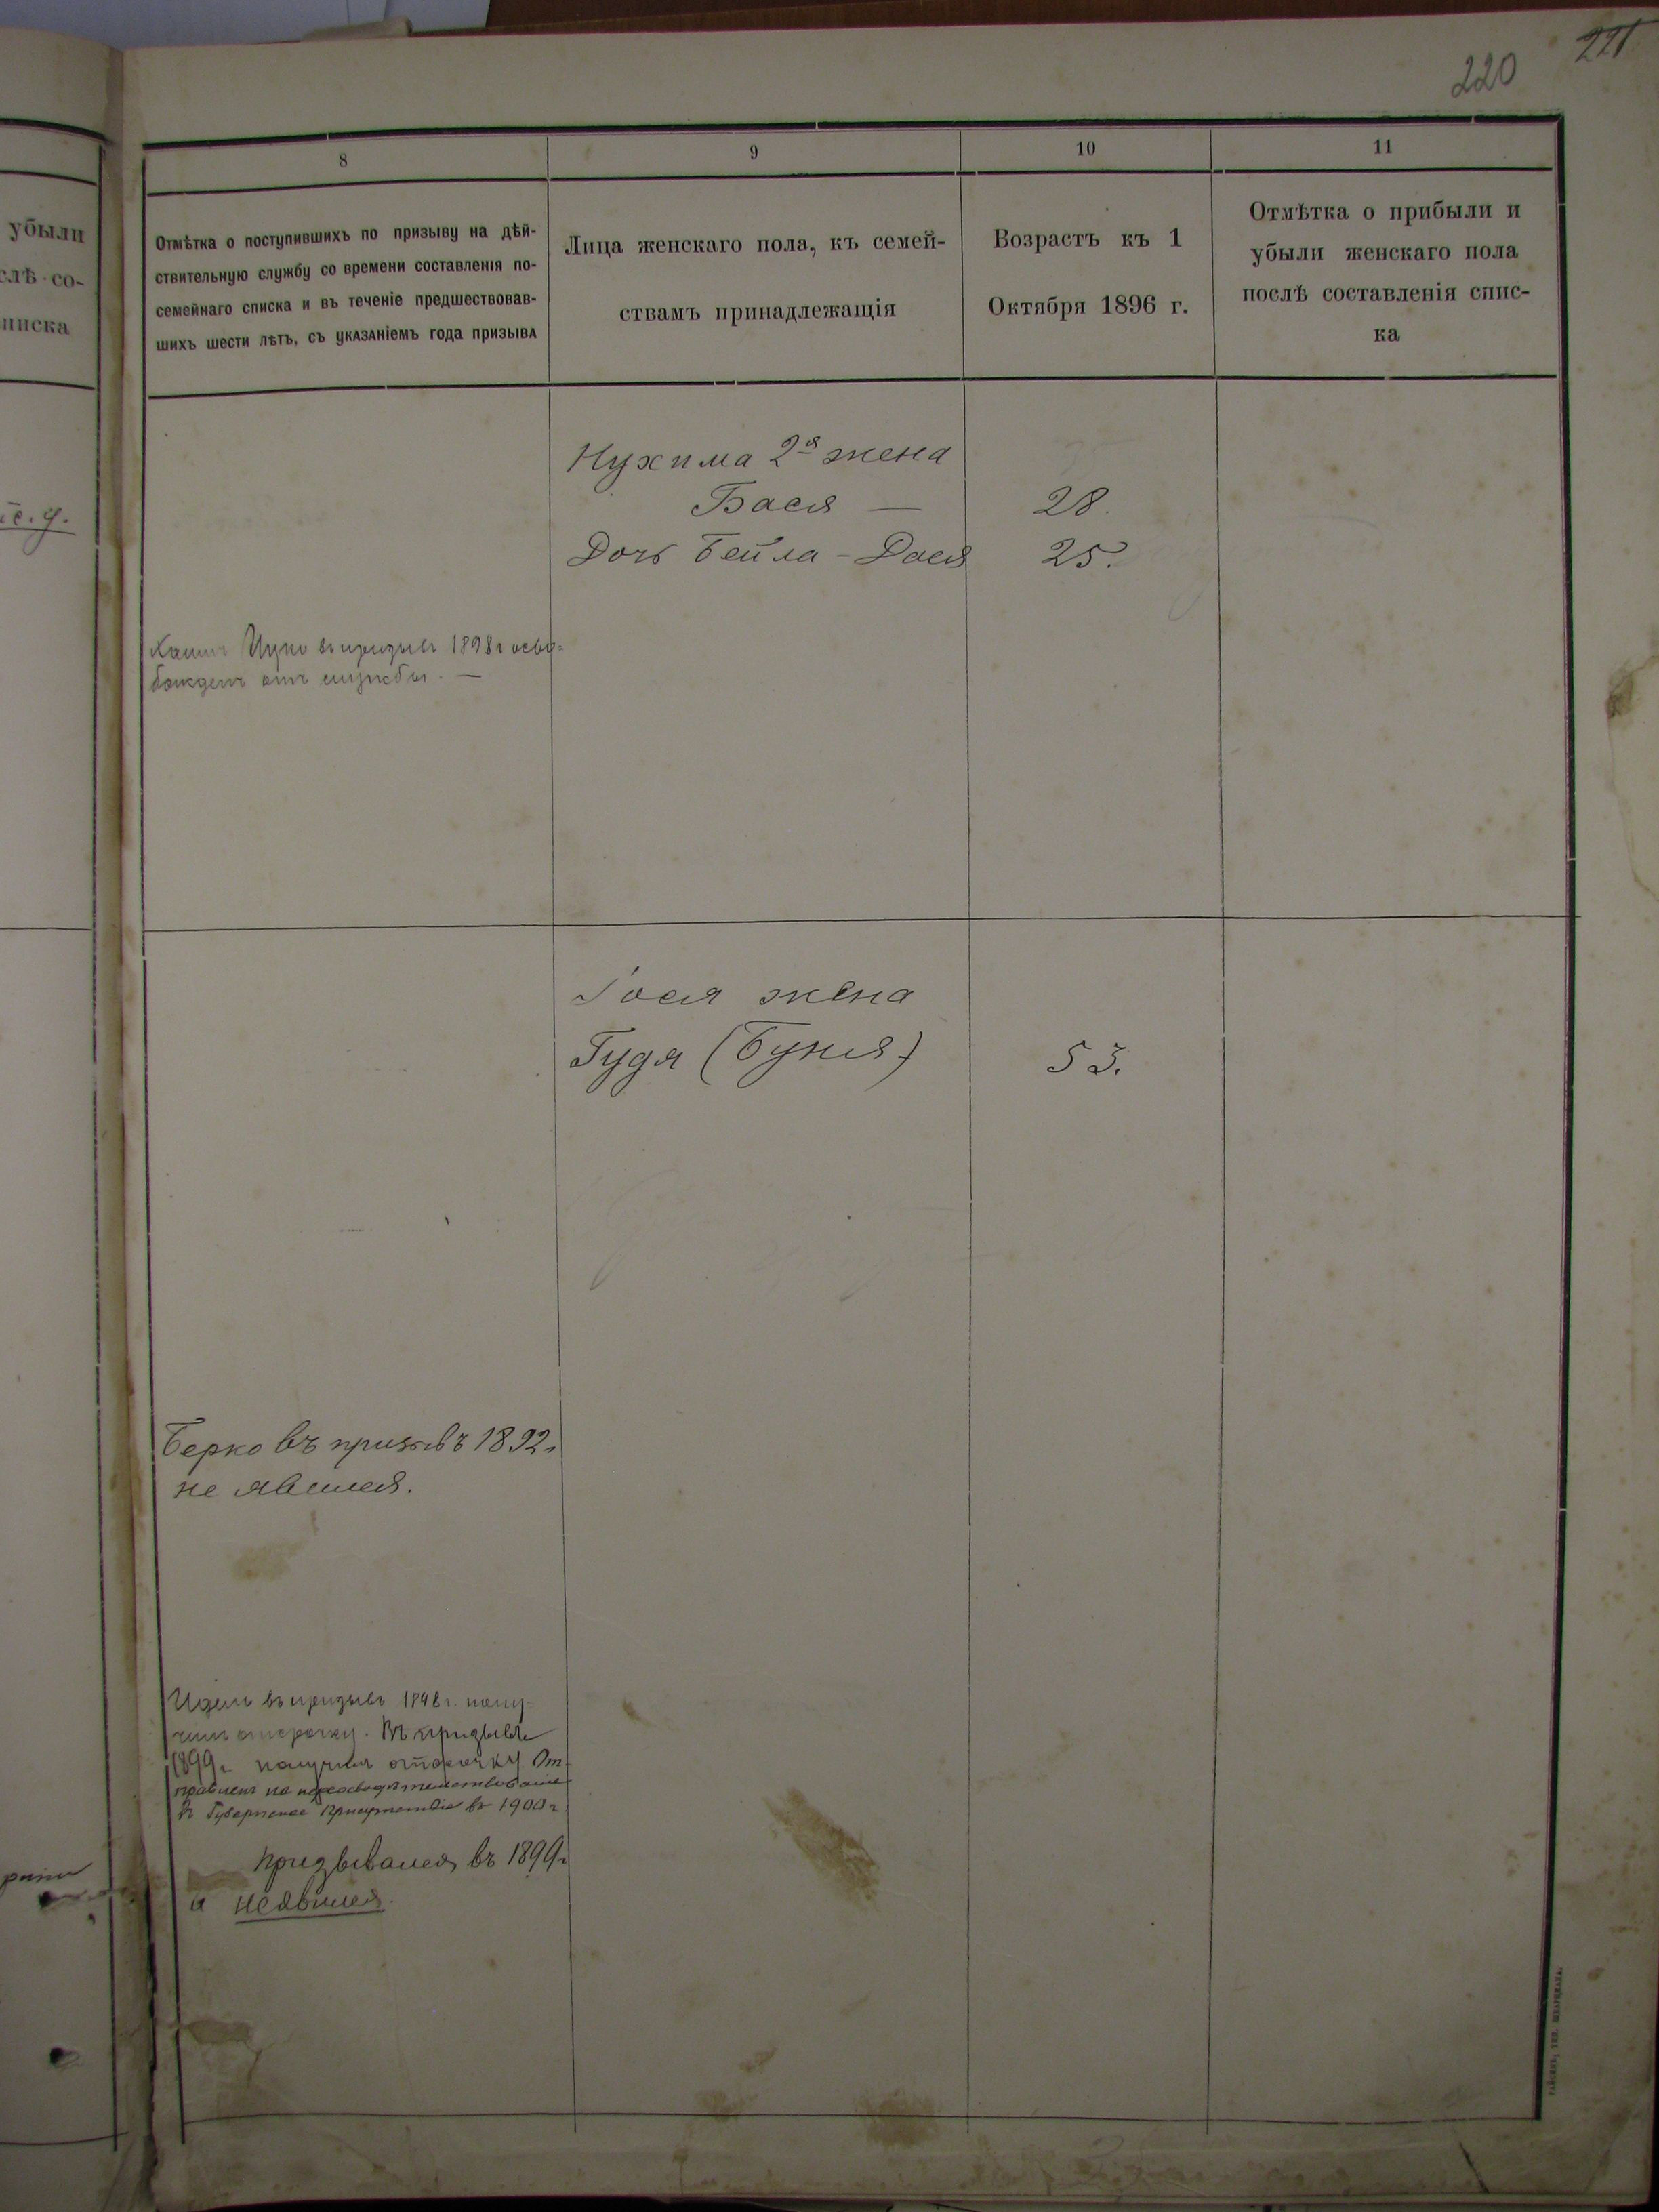 221
220
убыли
слѣ со-
писка
8
9
10
11
Отмѣтка о поступившихъ по призыву на дѣй-
ствительную службу со времени составленія по-
семейнаго списка и въ теченіе предшествовав-
шихъ шести лѣтъ, съ указаніемъ года призыва
Лица женскаго пола, къ семей-
ствамъ принадлежащія
Возрастъ къ 1
Октября 1896 г.
Отмѣтка о прибыли и
убыли женскаго пола
послѣ составленія спис-
ка
Нухима 2я жена
Бася — 28.
Дочь Бейла - Дася 25.
Ицко въ призывъ 1898 г осво-
божденъ отъ службы. —
жена
Гудя (Буня) 53.
Берко въ призывъ 1892 г
не явился.
въ призывъ 1898 г. полу-
чилъ отсрочку. Въ призывъ
1899 г. получилъ отсрочку От-
правленъ на переосвидѣтельствованіе
въ Губернское Присутствіе въ 1900 г.
призывался въ 1899 г
и неявился.